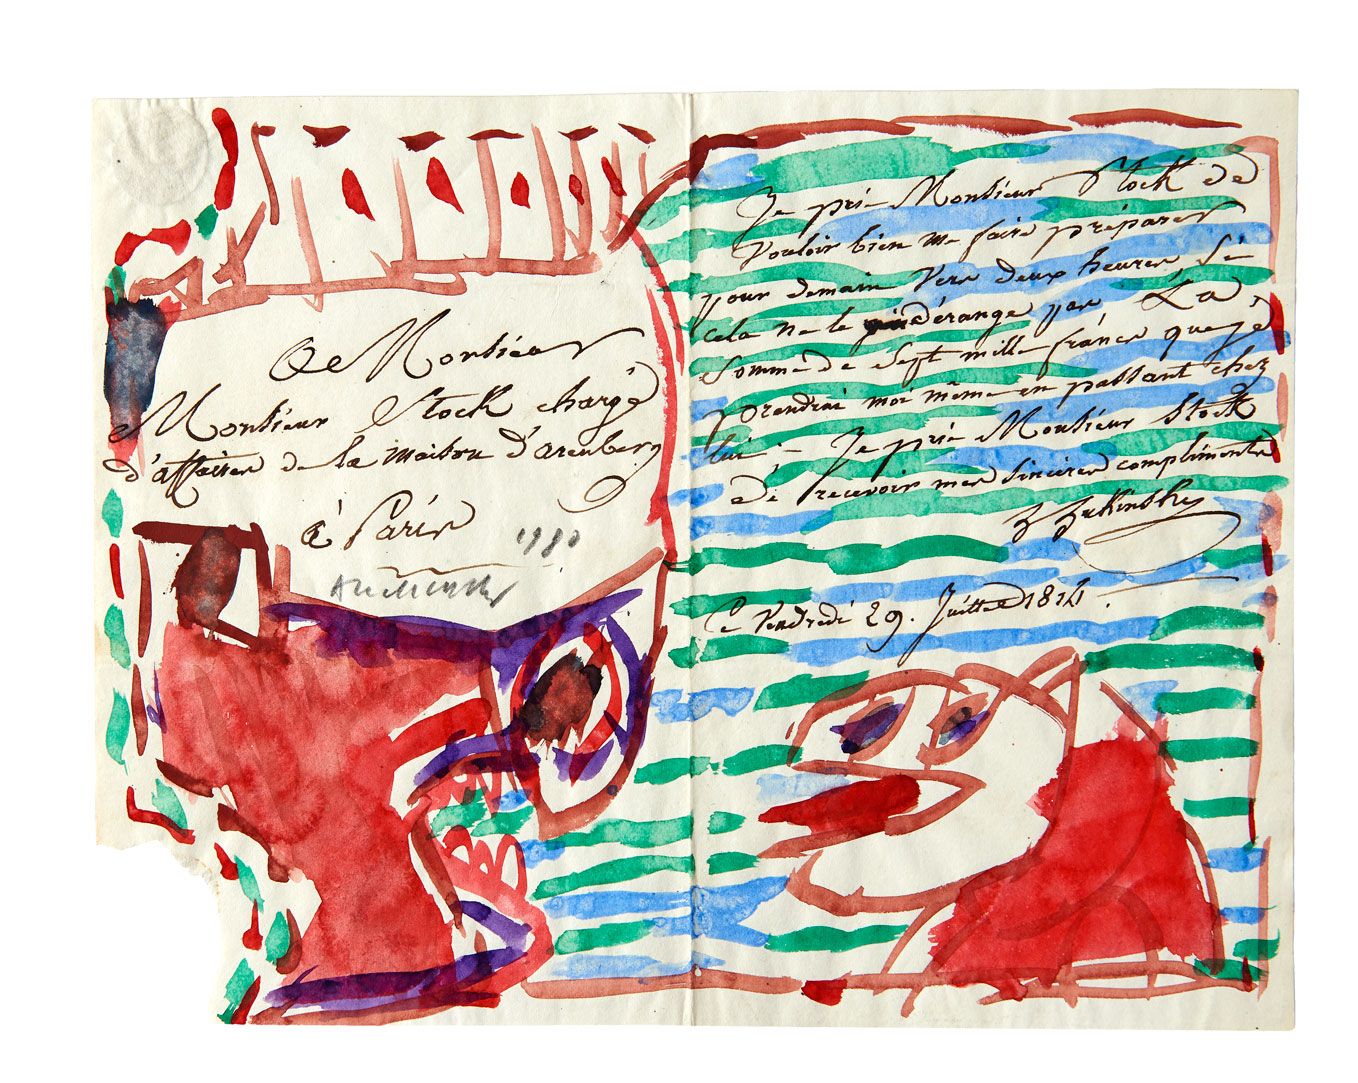 A Monsieur
Monsieur Stock chargé
d'affaires de la maison d'arenberg
à Paris
1980
Alechinsky
Je prie Monsieur Stock de
vouloir bien me faire préparer
pour demain vers deux heures si
cela ne le dérange pas La
somme de sept mille francs que je
prendrai moi même en passant chez
lui - Je prie Monsieur Stock
de recevoir mes sincères compliments
Ce Vendredi 29. Juillet 1814.